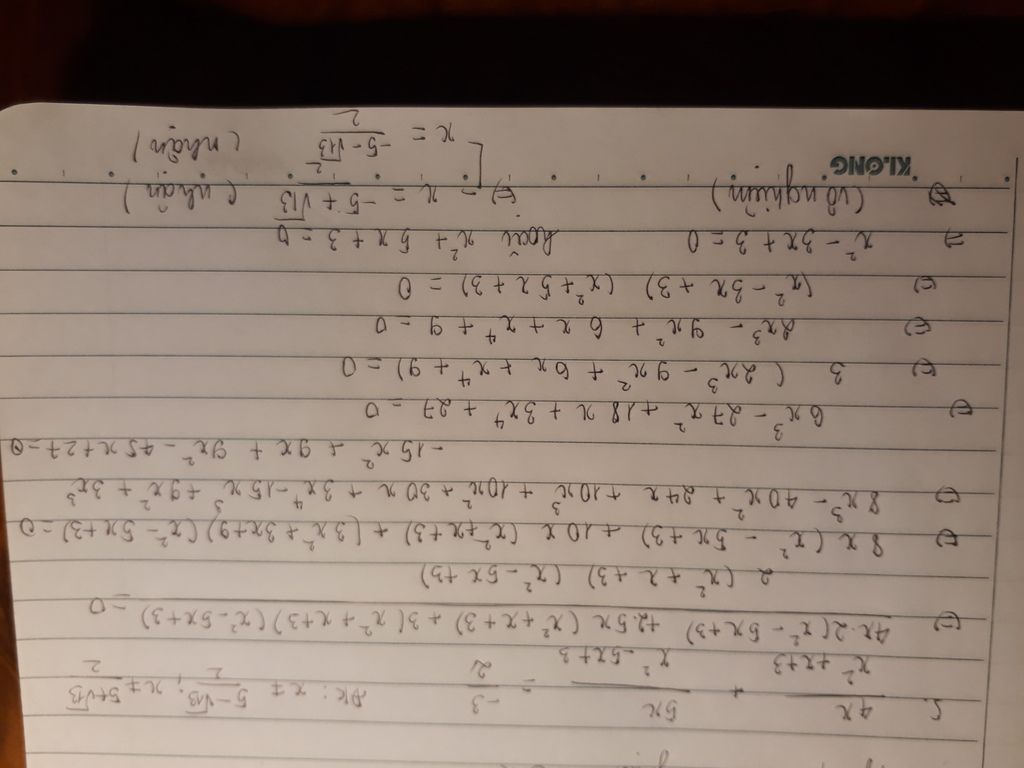 5. 4x/(x² + x + 3) + 5x/(x² - 5x + 3) = -3/2 ĐK: x ≠ (5 - √13)/2 ; x ≠ (5 + √13)/2
⇔ (4x.2(x² - 5x + 3) + 2.5x (x² + x + 3) + 3(x² + x + 3)(x² - 5x + 3))/(2 (x² + x + 3) (x² - 5x + 3)) = 0
⇔ 8x (x² - 5x + 3) + 10x (x² + x + 3) + (3x² + 3x + 9)(x² - 5x + 3) = 0
⇔ 8x³ - 40x² + 24x + 10x³ + 10x² + 30x + 3x⁴ - 15x³ + 9x² + 3x³
- 15x² + 9x + 9x² - 45x + 27 = 0
⇔ 6x³ - 27x² + 18x + 3x⁴ + 27 = 0
⇔ 3 (2x³ - 9x² + 6x + x⁴ + 9) = 0
⇔ 2x³ - 9x² + 6x + x⁴ + 9 = 0
⇔ (x² - 3x + 3) (x² + 5x + 3) = 0
⇒ x² - 3x + 3 = 0 hoặc x² + 5x + 3 = 0
(vô nghiệm) ⇔ [ x = (-5 + √13)/2 (nhận)
x = (-5 - √13)/2 (nhận)
KLONG